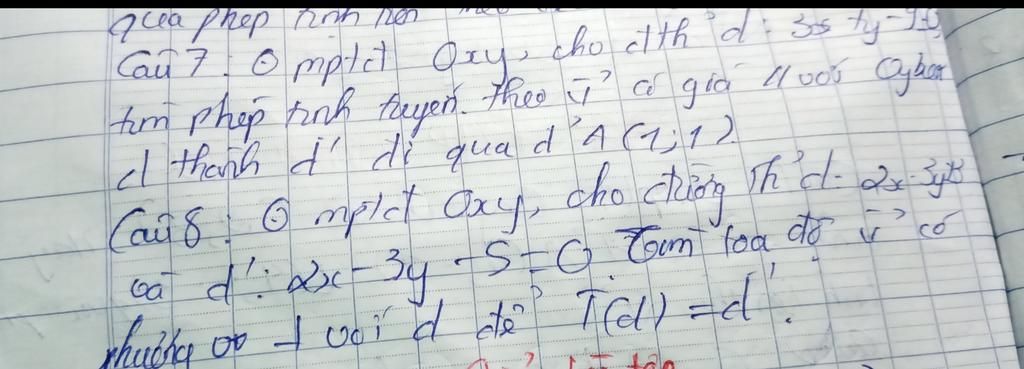 qua phép tịnh tiến theo
Câu 7: O mptđ Oxy, cho đth d: 3x + y - 9 = 0
tìm phép tịnh tuyến. theo v có giá // với Oy
d thành d' đi qua đ' A (1; 1)
Câu 8: O mptđ Oxy, cho đường th d: 2x - 3y
và d': 2x - 3y - 5 = 0. Tìm toạ độ v có
phương ⊥ với d để T(d) = d'.